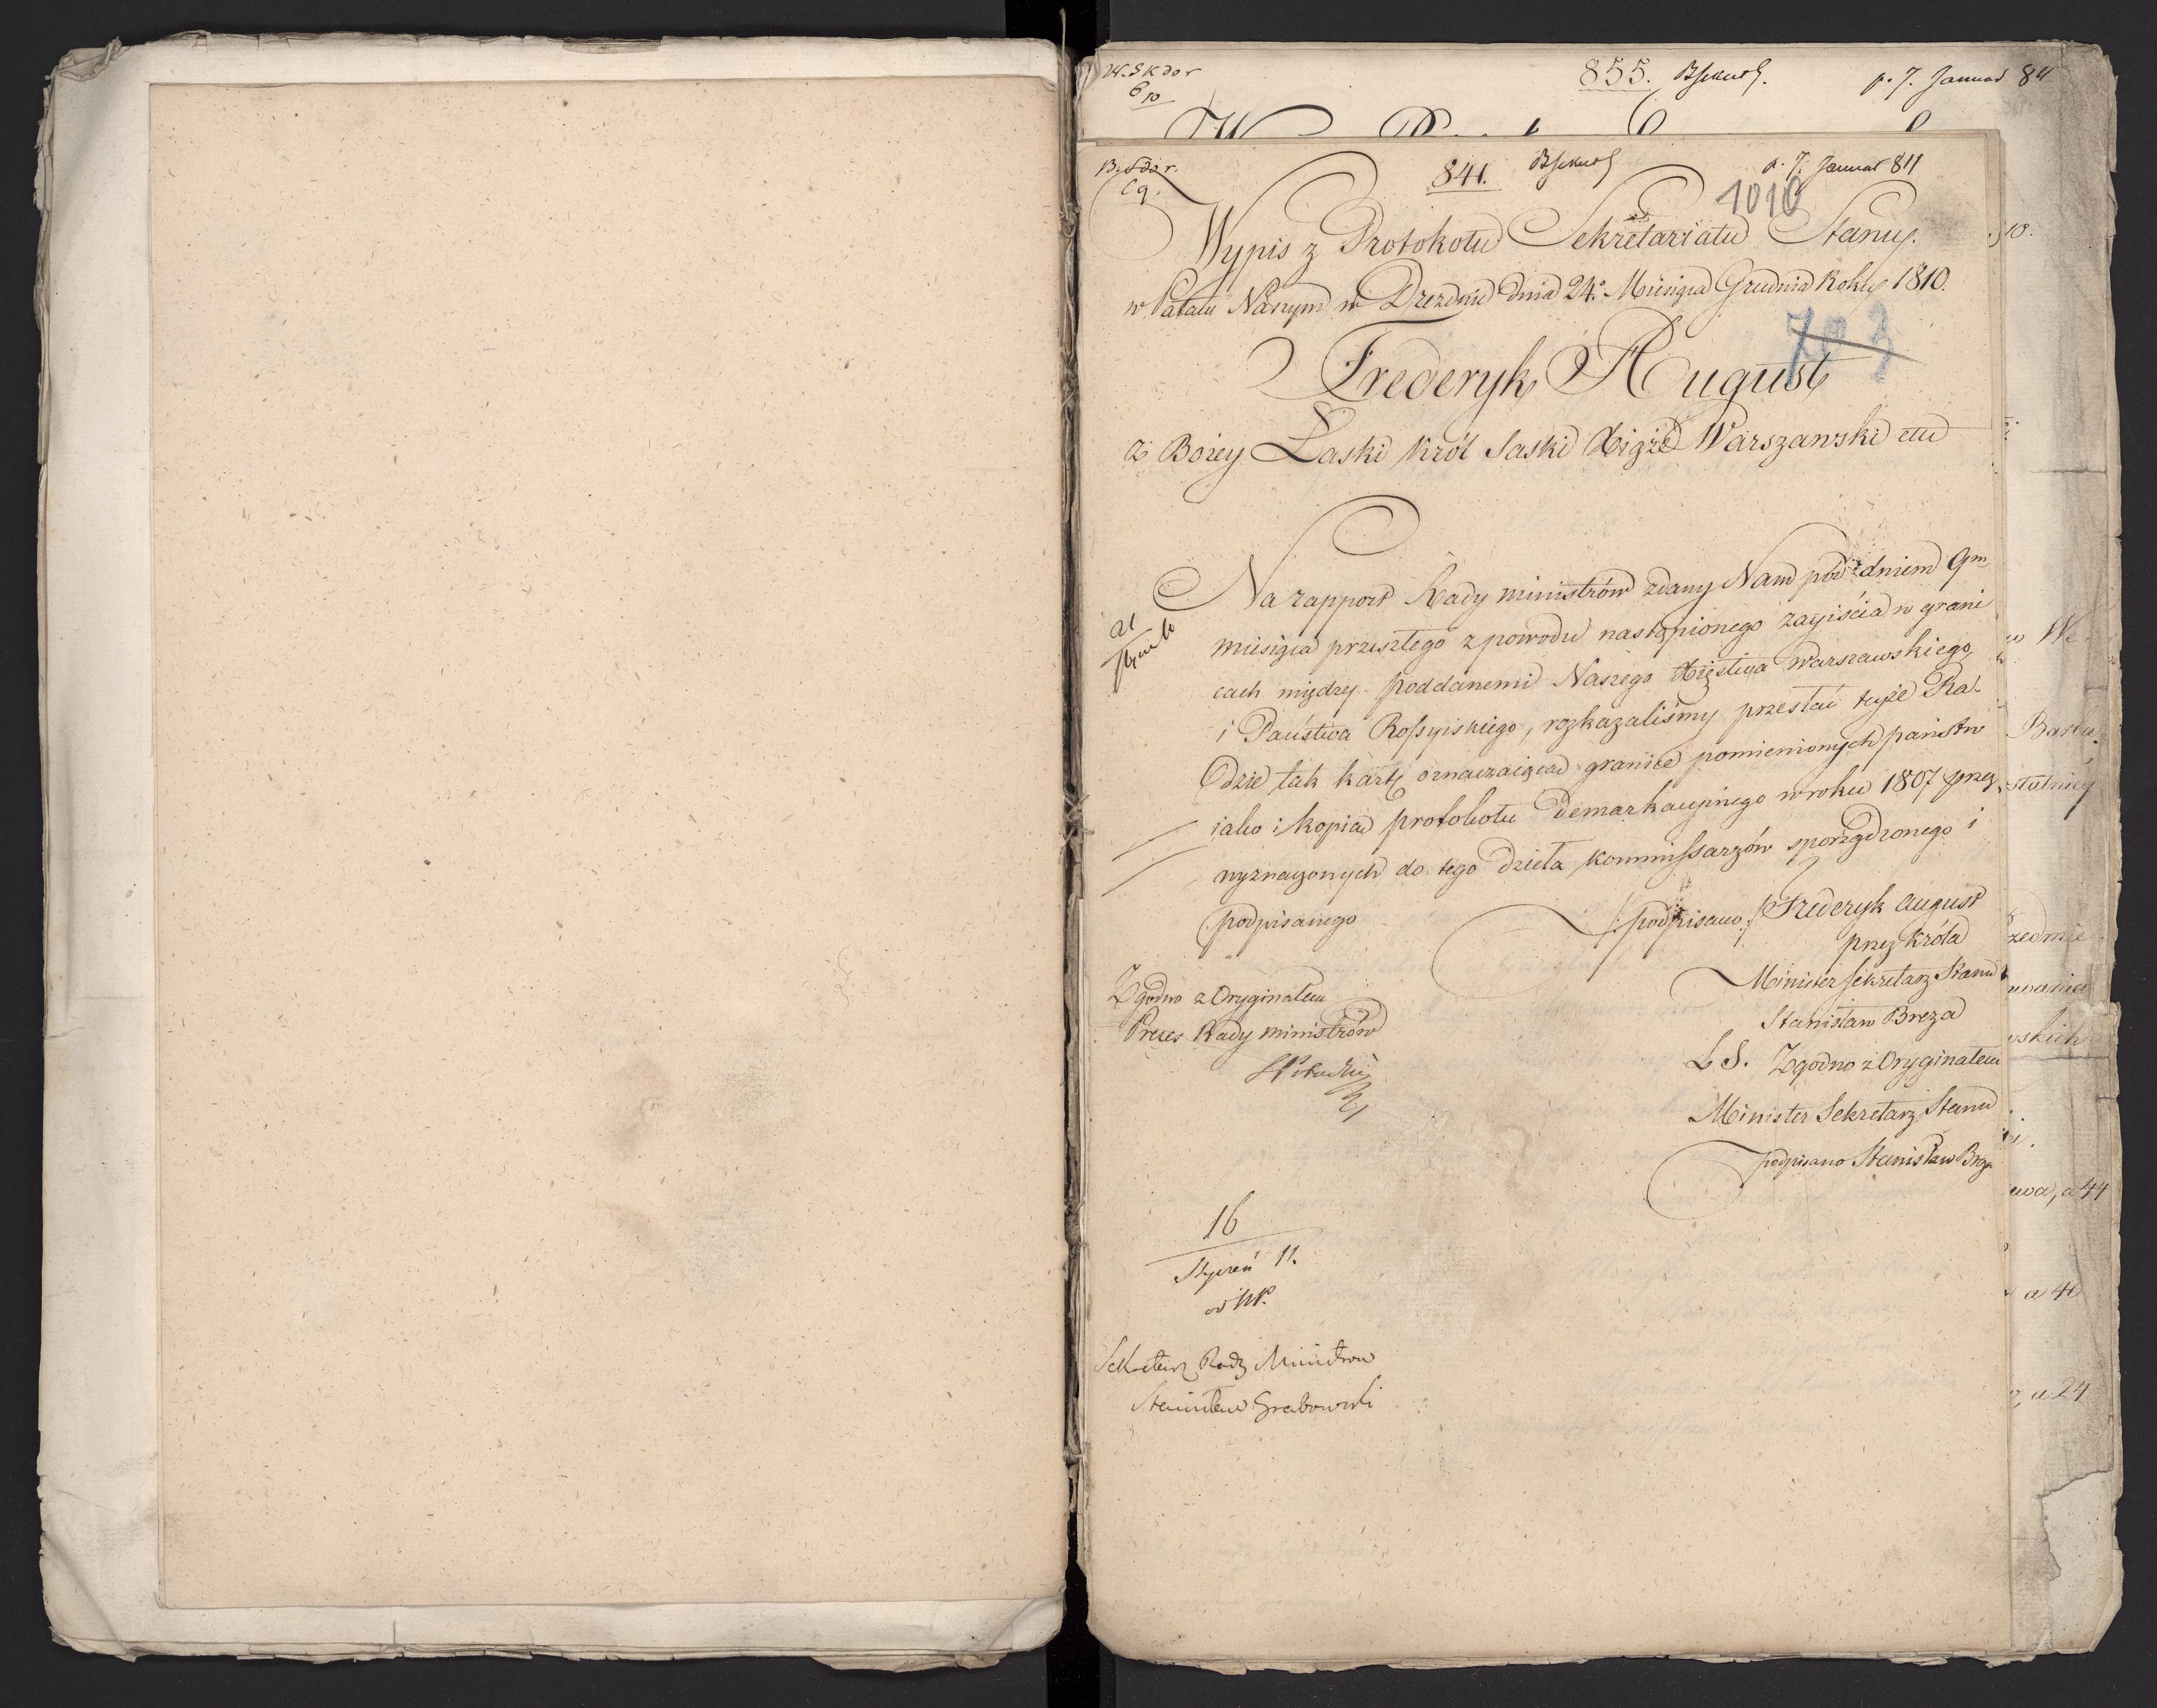 855.
p. 7. Januar 811
841.
p. 7. Januar 811
1010
Wypis z Protokołu Sekretariatu Stanu.
w Pałacu Naszym w Dreznie dnia 24.° Miesiąca Grudnia Roku 1810.
703
Frederyk August
z Bożey Łaski Król Saski Xiąże Warszawski etc
Na rapport Rady ministrów zdany Nam pod dniem 9m
miesiąca przeszłego z powodu nastąpionego zayiścia w grani
cach między poddanemi Naszego Xięstwa Warszawskiego,
i Państwa Rossyiskiego, rozkazaliśmy przesłać teyże Ra-
dzie tak kartę oznaczaiącą granice pomienionych państw
iako i kopią protokołu Demarkacyinego w roku 1807 przez
wyznaczonych do tego dzieła kommissarzów sporządzonego i
podpisanego
/: podpisano :/ Frederyk August
przez Króla
Minister Sekretarz Stanu
Stanisław Breza
L S. Zgodno z Oryginałem
Minister Sekretarz Stanu
podpisano Stanisław Breza
Zgodno z Oryginałem
Prezes Rady ministrów
16
Styczeń 11.
Sekretarz Rady Ministrow
Stanisław Grabowski
10.
w We
zedmie
wania
wskich
ewa, a 44
a 40
a 24